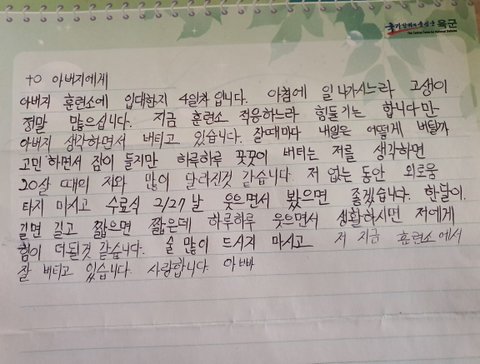 국가방위의 중심군 육군
The Central Force for National Defense
to 아버지에게
아버지 훈련소에 입대한지 4일차 입니다. 아침에 일 나가시느라 고생이
정말 많으십니다. 지금 훈련소 적응하느라 힘들기는 합니다만
아버지 생각하면서 버티고 있습니다. 잘때마다 내일은 어떻게 버틸까
고민 하면서 잠이 들지만 하루하루 꿋꿋이 버티는 저를 생각하면
20살 때의 저와 많이 달라진것 같습니다. 저 없는 동안 외로움
타지 마시고 수료식 2/27날 웃으면서 봤으면 좋겠습니다. 한달이.
길면 길고 짧으면 짧은데 하루하루 웃으면서 생활하시면 저에게
힘이 더 될것 같습니다. 술 많이 드시지 마시고 저 지금 훈련소에서
잘 버티고 있습니다. 사랑합니다 아빠